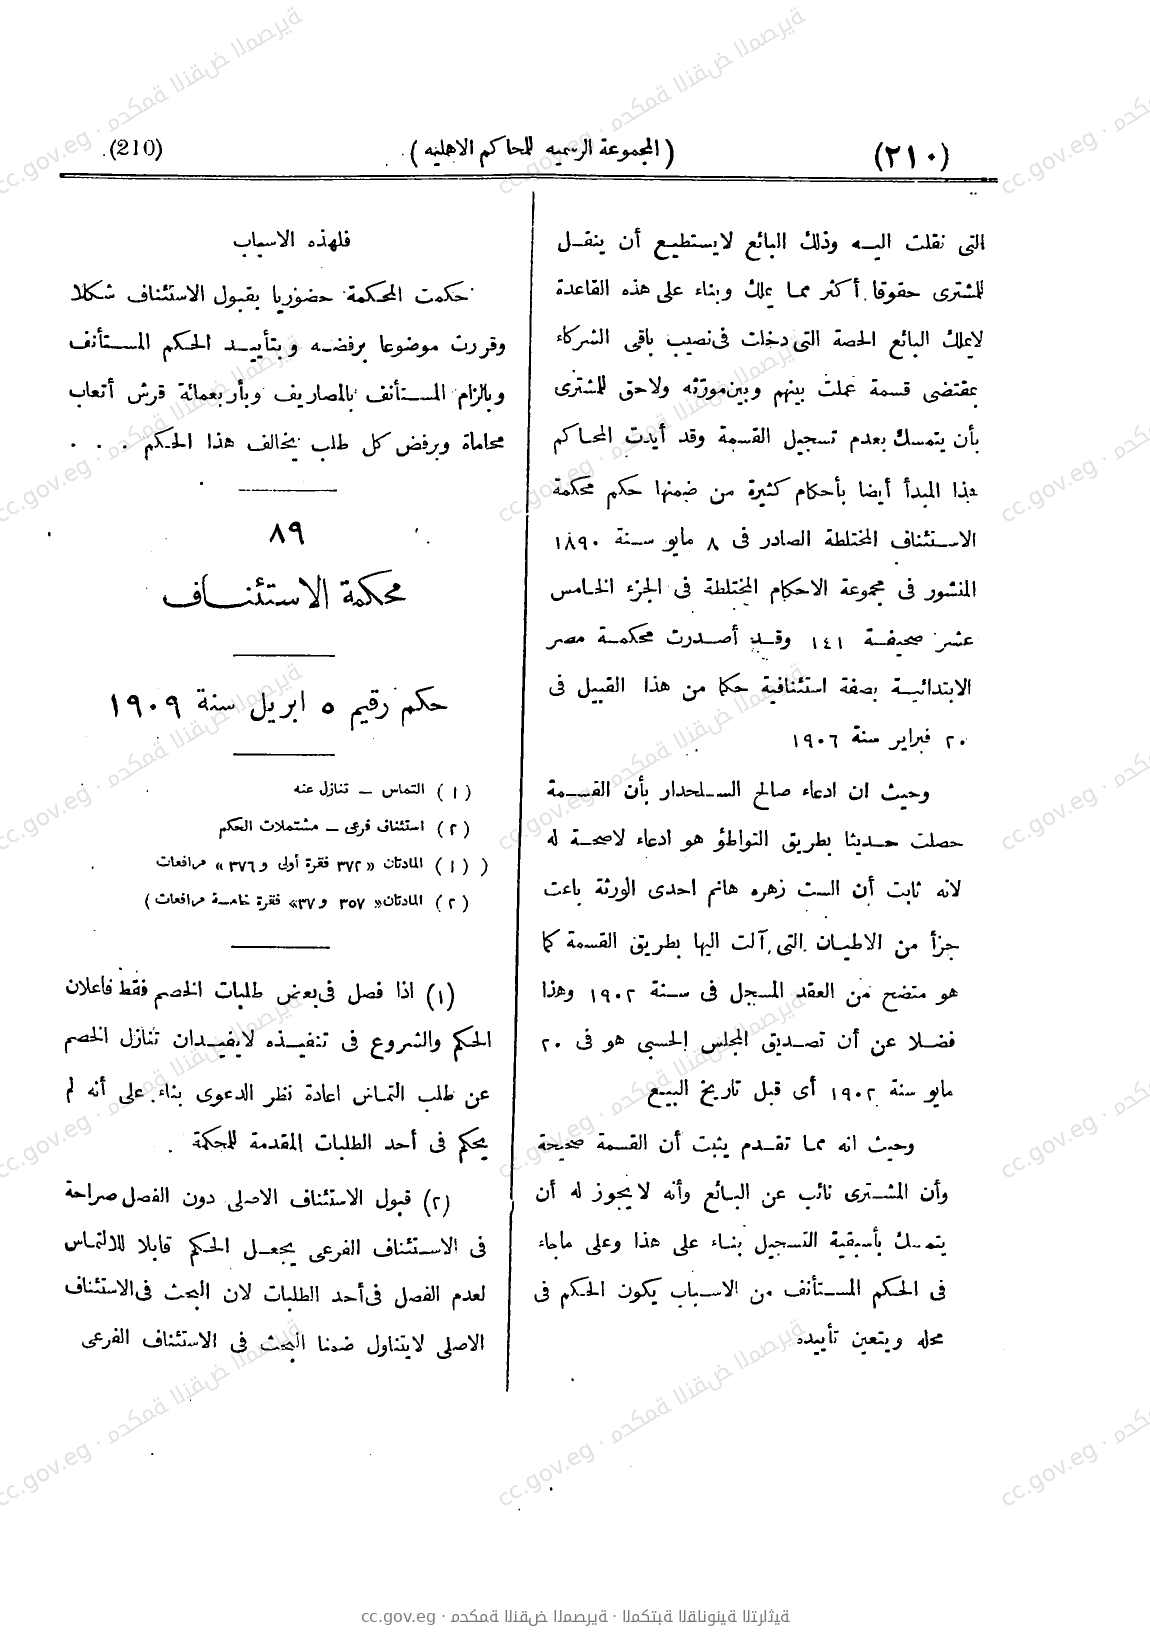 (٢١٠)
(المجموعة الرسميه للمحاكم الاهليه)
(210)
التى نقلت اليه وذلك البائع لايستطيع أن ينقل
للمشترى حقوقا أكثر مما يملك وبناء على هذه القاعدة
لايملك البائع الحصة التى دخلت فى نصيب باقى الشركاء
بمقتضى قسمة عملت بينهم وبين مورثه ولاحق للمشترى
بأن يتمسك بعدم تسجيل القسمة وقد أيدت المحاكم
هذا المبدأ أيضا بأحكام كثيرة من ضمنها حكم محكمة
الاستئناف المختلطة الصادر فى ٨ مايو سنة ١٨٩٠
المنشور فى مجموعة الاحكام المختلطة فى الجزء الخامس
عشر صحيفة ١٤١ وقد أصدرت محكمة مصر
الابتدائية بصفة استئنافية حكما من هذا القبيل فى
٢٠ فبراير سنة ١٩٠٦
وحيث ان ادعاء صالح السلحدار بأن القسمة
حصلت حديثا بطريق التواطؤ هو ادعاء لاصحة له
لانه ثابت أن الست زهره هانم احدى الورثة باعت
جزأ من الاطيان التى آلت اليها بطريق القسمة كما
هو متضح من العقد المسجل فى سنة ١٩٠٢ وهذا
فضلا عن أن تصديق المجلس الحسبى هو فى ٢٠
مايو سنة ١٩٠٢ أى قبل تاريخ البيع
وحيث انه مما تقدم يثبت أن القسمة صحيحة
وأن المشترى نائب عن البائع وأنه لايجوز له أن
يتمسك بأسبقية التسجيل بناء على هذا وعلى ماجاء
فى الحكم المستأنف من الاسباب يكون الحكم فى
محله ويتعين تأييده
فلهذه الاسباب
حكمت المحكمة حضوريا بقبول الاستئناف شكلا
وقررت موضوعا برفضه وبتأييد الحكم المستأنف
وبالزام المستأنف بالمصاريف وبأربعمائة قرش أتعاب
محاماة وبرفض كل طلب يخالف هذا الحكم . . .
٨٩
محكمة الاستئناف
حكم رقيم ٥ ابريل سنة ١٩٠٩
(١) التماس – تنازل عنه
(٢) استئناف فرعى – مشتملات الحكم
( (١) المادتان «٣٧٢ فقرة أولى و٣٧٦» مرافعات
(٢) المادتان «٣٥٧ و٣٧» فقرة خامسة مرافعات)
(١) اذا فصل فى بعض طلبات الخصم فقط فاعلان
الحكم والشروع فى تنفيذه لايفيدان تنازل الخصم
عن طلب التماس اعادة نظر الدعوى بناء على أنه لم
يحكم فى أحد الطلبات المقدمة للمحكمة .
(٢) قبول الاستئناف الاصلى دون الفصل صراحة
فى الاستئناف الفرعى يجعل الحكم قابلا للالتماس
لعدم الفصل فى أحد الطلبات لان البحث فى الاستئناف
الاصلى لايتناول ضمنا البحث فى الاستئناف الفرعى
cc.gov.eg · محكمة النقض المصرية · المكتبة القانونية التراثية